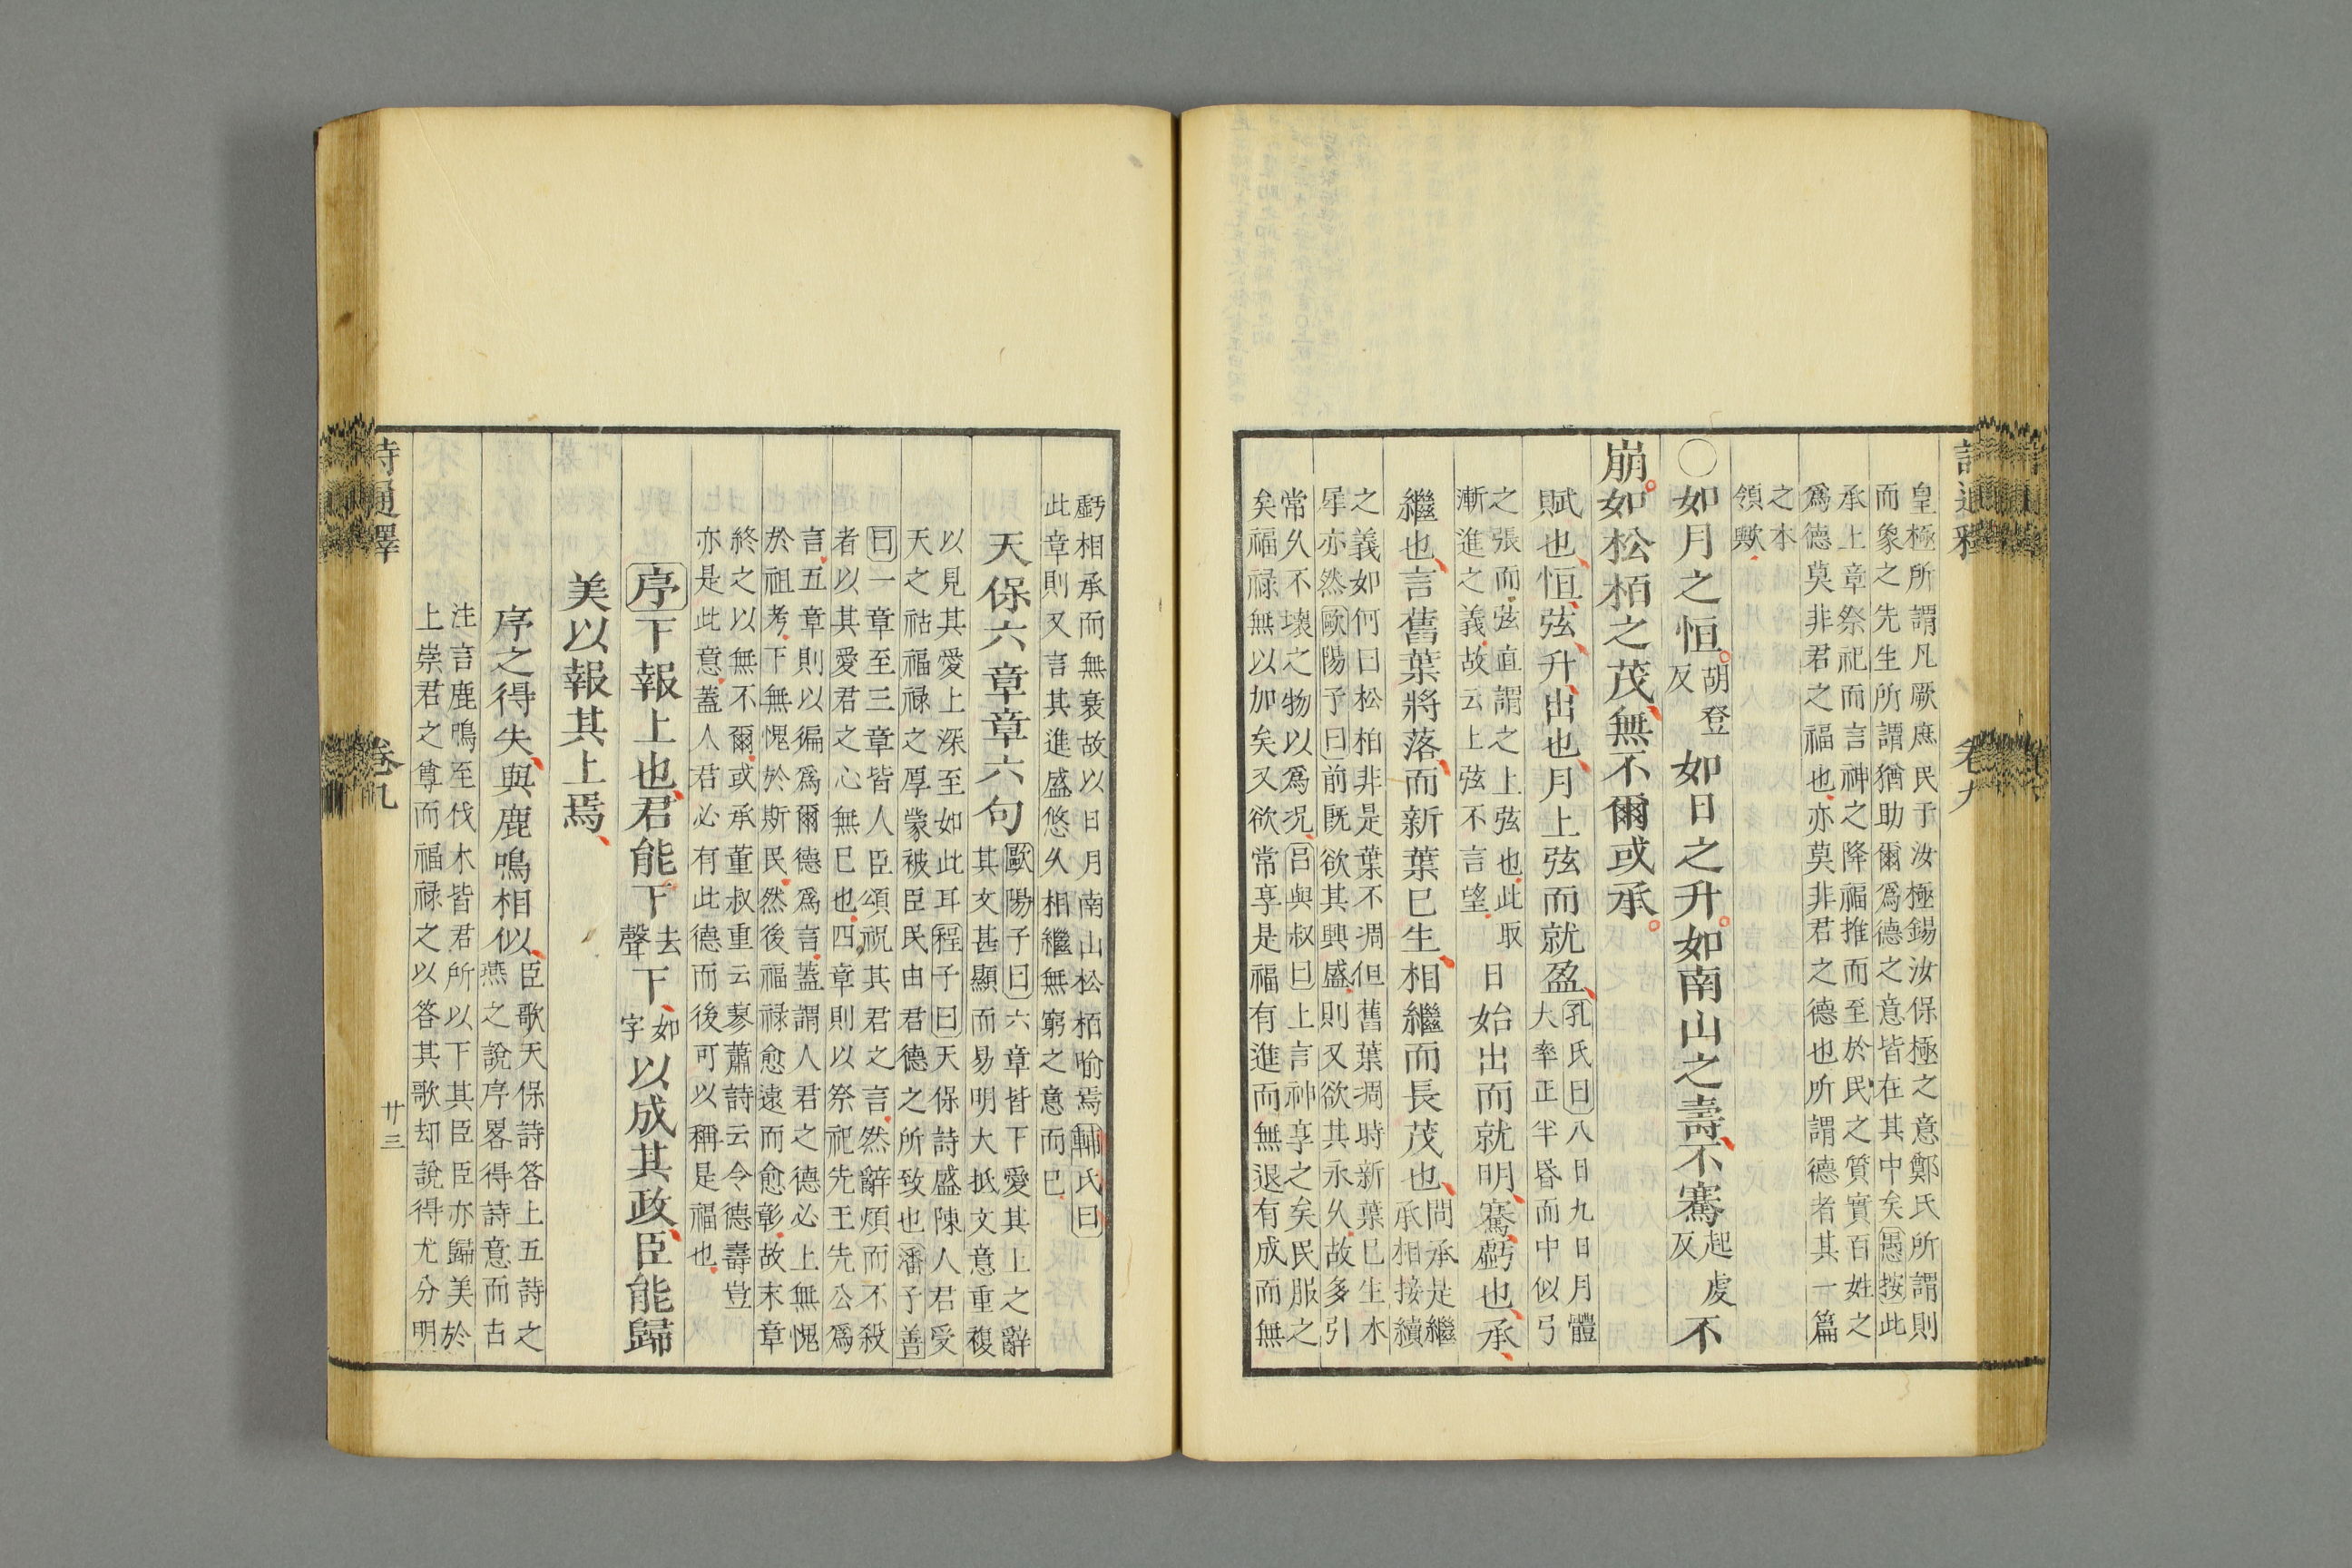 皇極所謂凡厥庶民于汝極錫汝保極之意鄭氏所謂則
而象之先生所謂猶助爾爲德之意皆在其中矣愚按此
承上章祭祀而言神之降福推而至於民之質實百姓之
爲德莫非君之福也亦莫非君之德也所謂德者其一篇
之本
領歟
○如月之恒胡登反如日之升如南山之壽不騫起虔反不
崩如松栢之茂無不爾或承
賦也恒弦升出也月上弦而就盈孔氏曰八日九日月體
大率正半昏而中似弓
之張而弦直謂之上弦也此取
漸進之義故云上弦不言望
日始出而就明騫虧也承
繼也言舊葉將落而新葉巳生相繼而長茂也問承是繼
承相接續
之義如何曰松柏非是葉不凋但舊葉凋時新葉巳生木
犀亦然歐陽子曰前既欲其興盛則又欲其永久故多引
常久不壞之物以爲况呂與叔曰上言神享之矣民服之
矣福祿無以加矣又欲常享是福有進而無退有成而無
虧相承而無衰故以日月南山松栢喻焉輔氏曰
此章則又言其進盛悠久相繼無窮之意而巳
天保六章章六句歐陽子曰六章皆下愛其上之辭
其文甚顯而易明大抵文意重複
以見其愛上深至如此耳程子曰天保詩盛陳人君受
天之祜福祿之厚蒙被臣民由君德之所致也潘子善
曰一章至三章皆人臣頌祝其君之言然辭煩而不殺
者以其愛君之心無巳也四章則以祭祀先王先公爲
言五章則以徧爲爾德爲言蓋謂人君之德必上無愧
於祖考下無愧於斯民然後福祿愈遠而愈彰故末章
終之以無不爾或承董叔重云蓼蕭詩云令德壽豈
亦是此意蓋人君必有此德而後可以稱是福也
序下報上也君能下去聲下如字以成其政臣能歸
美以報其上焉
序之得失與鹿鳴相似臣歌天保詩答上五詩之
燕之說序畧得詩意而古
注言鹿鳴至伐木皆君所以下其臣臣亦歸美於
上崇君之尊而福祿之以答其歌却說得尤分明
詩通釋 卷九 廿三